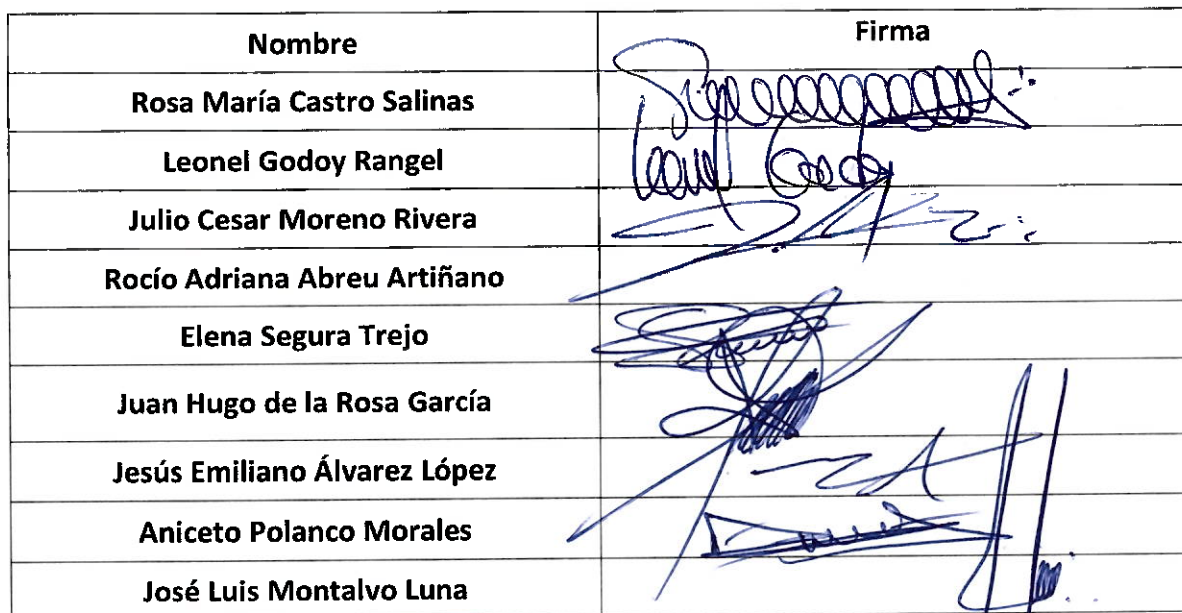 Nombre Firma
Rosa María Castro Salinas
Leonel Godoy Rangel Leonel Godoy
Julio Cesar Moreno Rivera
Rocío Adriana Abreu Artiñano
Elena Segura Trejo
Juan Hugo de la Rosa García
Jesús Emiliano Álvarez López
Aniceto Polanco Morales
José Luis Montalvo Luna